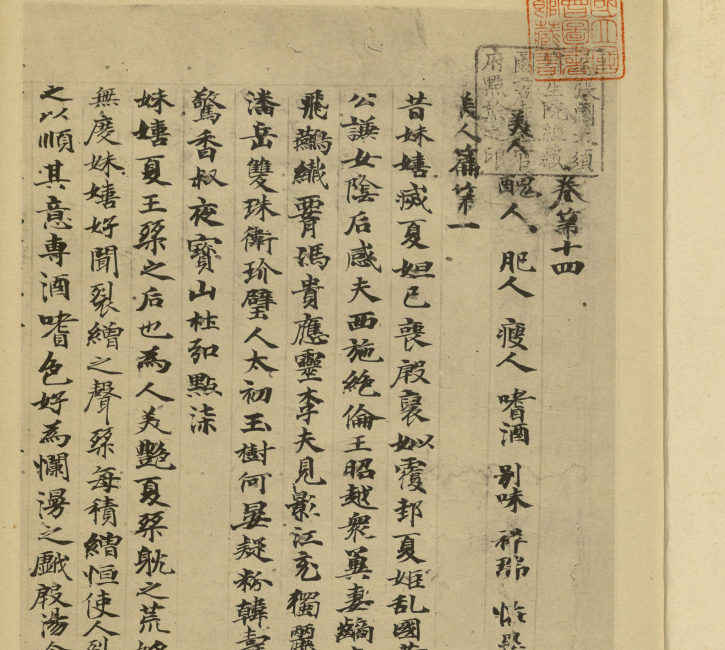 卷第十四
美人 醜人 肥人 瘦人 嗜酒 別味 祥瑞 恠異
美人篇第一
昔妹嬉滅夏妲己喪殷褒姒覆邦夏姬乱國
公謙女陰后感夫西施絶倫王昭越衆異妻
飛鷰纎罥馮貴應靈李夫見影江充獨麗
潘岳雙珠衛玠璧人太初玉樹何晏疑粉韓壽
驚香叔夜寳山杜弘點漆
妹嬉夏王桀之后也為人美艶夏桀躭之荒
無度妹嬉好聞裂繒之聲桀每積繒恒使人裂
之以順其意専酒嗜色好為爛漫之戯殷湯